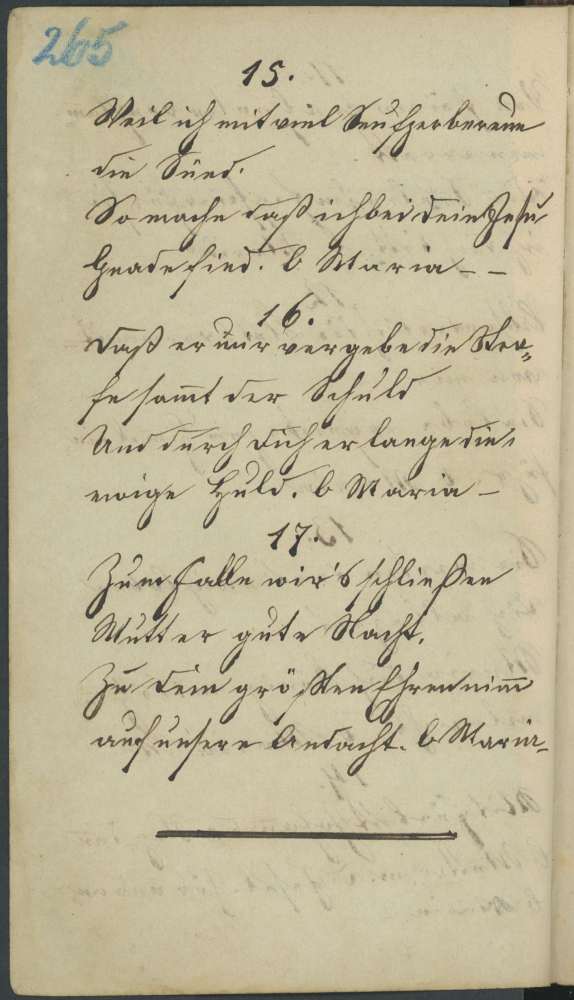 265
15.
Weil ich mit viel Seufzer bereue
die Sünd.
So mache daß ich bei dein Jesu
Gnade find. O Maria - -
16.
Daß er mir vergebe die Stra„
fe sam̅t der Schuld
Und durch dich erlange die
ewige Huld. O Maria -
17.
Zum Falle wir's schließen
Mutter gute Nacht,
Zu dein größten Ehren nim̅
auf unsere Andacht. O Maria-